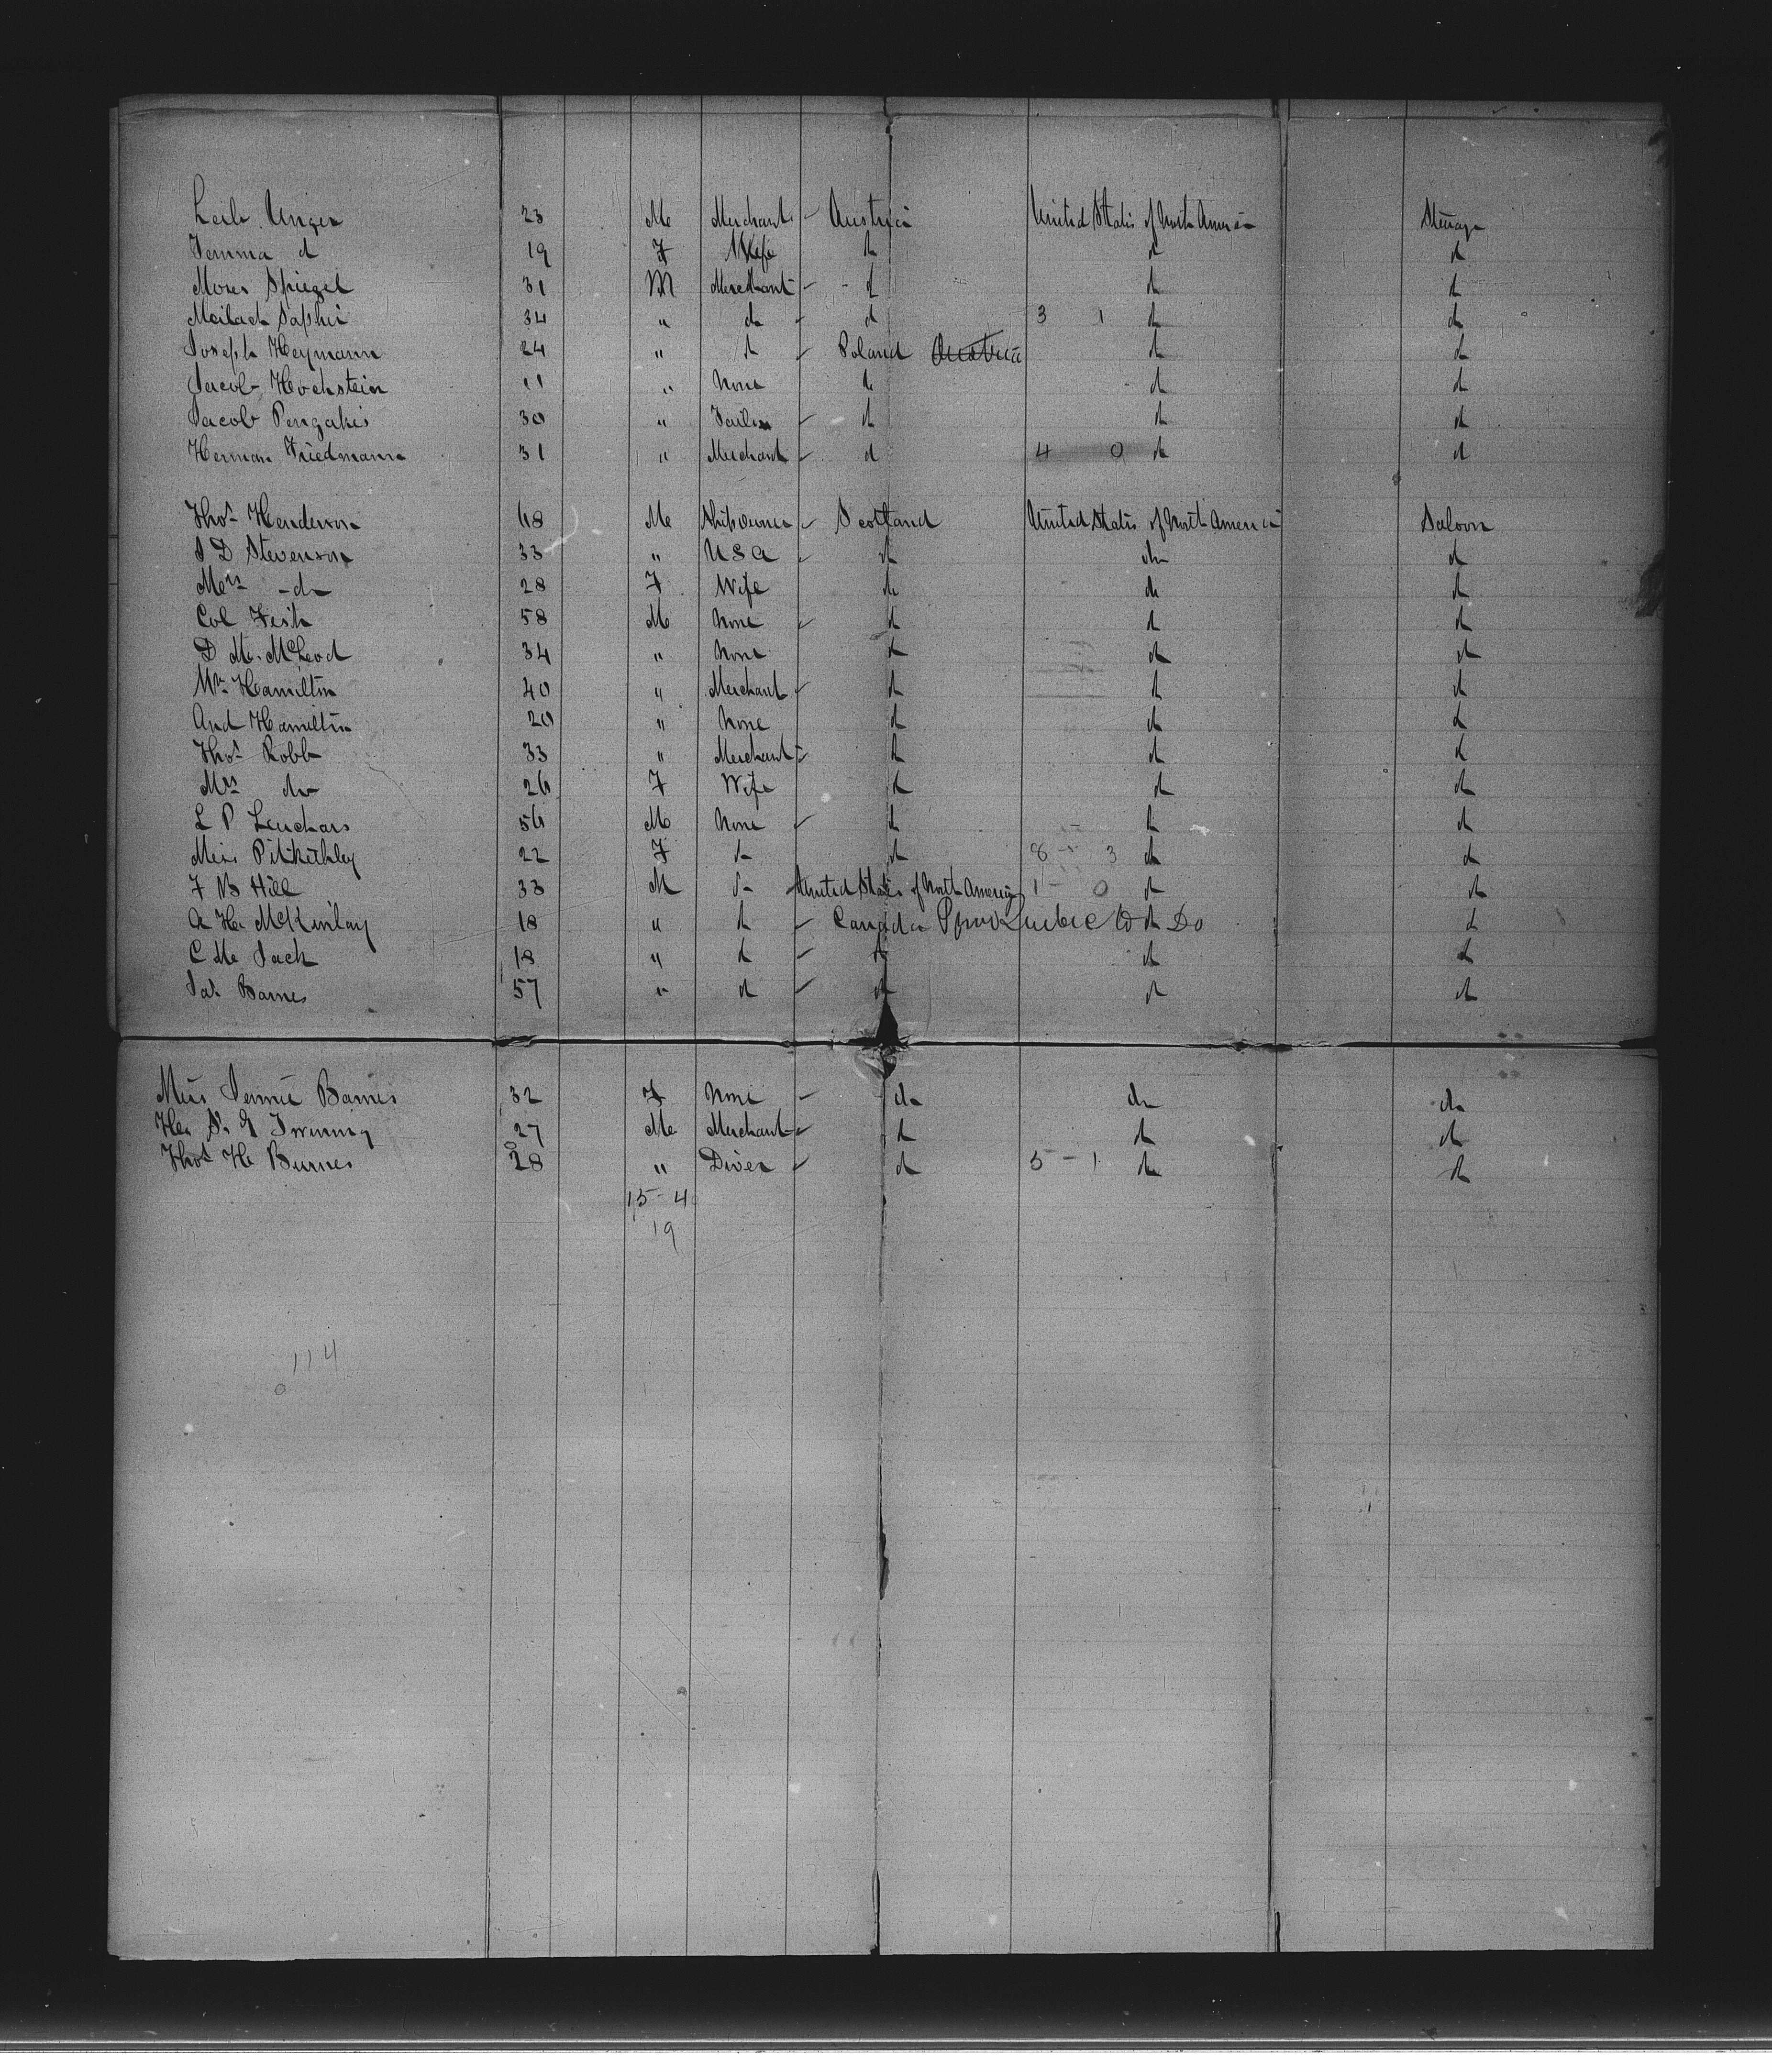 Leib Unger 23 M Merchant Austria United States of North America Steerage
Jemma d 19 F Wife do do do
Moses Spiegel 31 M Merchant do do do
Meilach Saphir 34 " do do 3 1 do do
Joseph Heymann 24 " do Poland Austria do do
Jacob Hochstein 11 " None do do do
Jacob Pengakis 30 " Tailor do do do
Herman Friedmann 31 " Merchant do 4 0 do do
Thos Henderson 48 M Shipowner Scotland United States of North America Saloon
J D Stevenson 33 " USA do do do
Mrs - do 28 F Wife do do do
Col Fish 58 M None do do do
D M. McLeod 34 " None do do do
Wm Hamilton 40 " Merchant do do do
And Hamilton 20 " None do do do
Thos Robb 33 " Merchant do do do
Mrs do 26 F Wife do do do
L P Leuchars 56 M None do do do
Miss Pitkethley 22 F do do 8 - 3 do do
F B Hill 33 M do United States of North America 1 - 0 do do
A H McKinlay 18 " do Canada Quebec do Do do
C M Jack 18 " do do do do
Jas. Barnes 57 " do do do do
Miss Jennie Barnes 32 F None do do do
27 M Merchant do do do
Thos H Burnes 28 " Diver do 5 - 1 do do
15 - 4
19
114